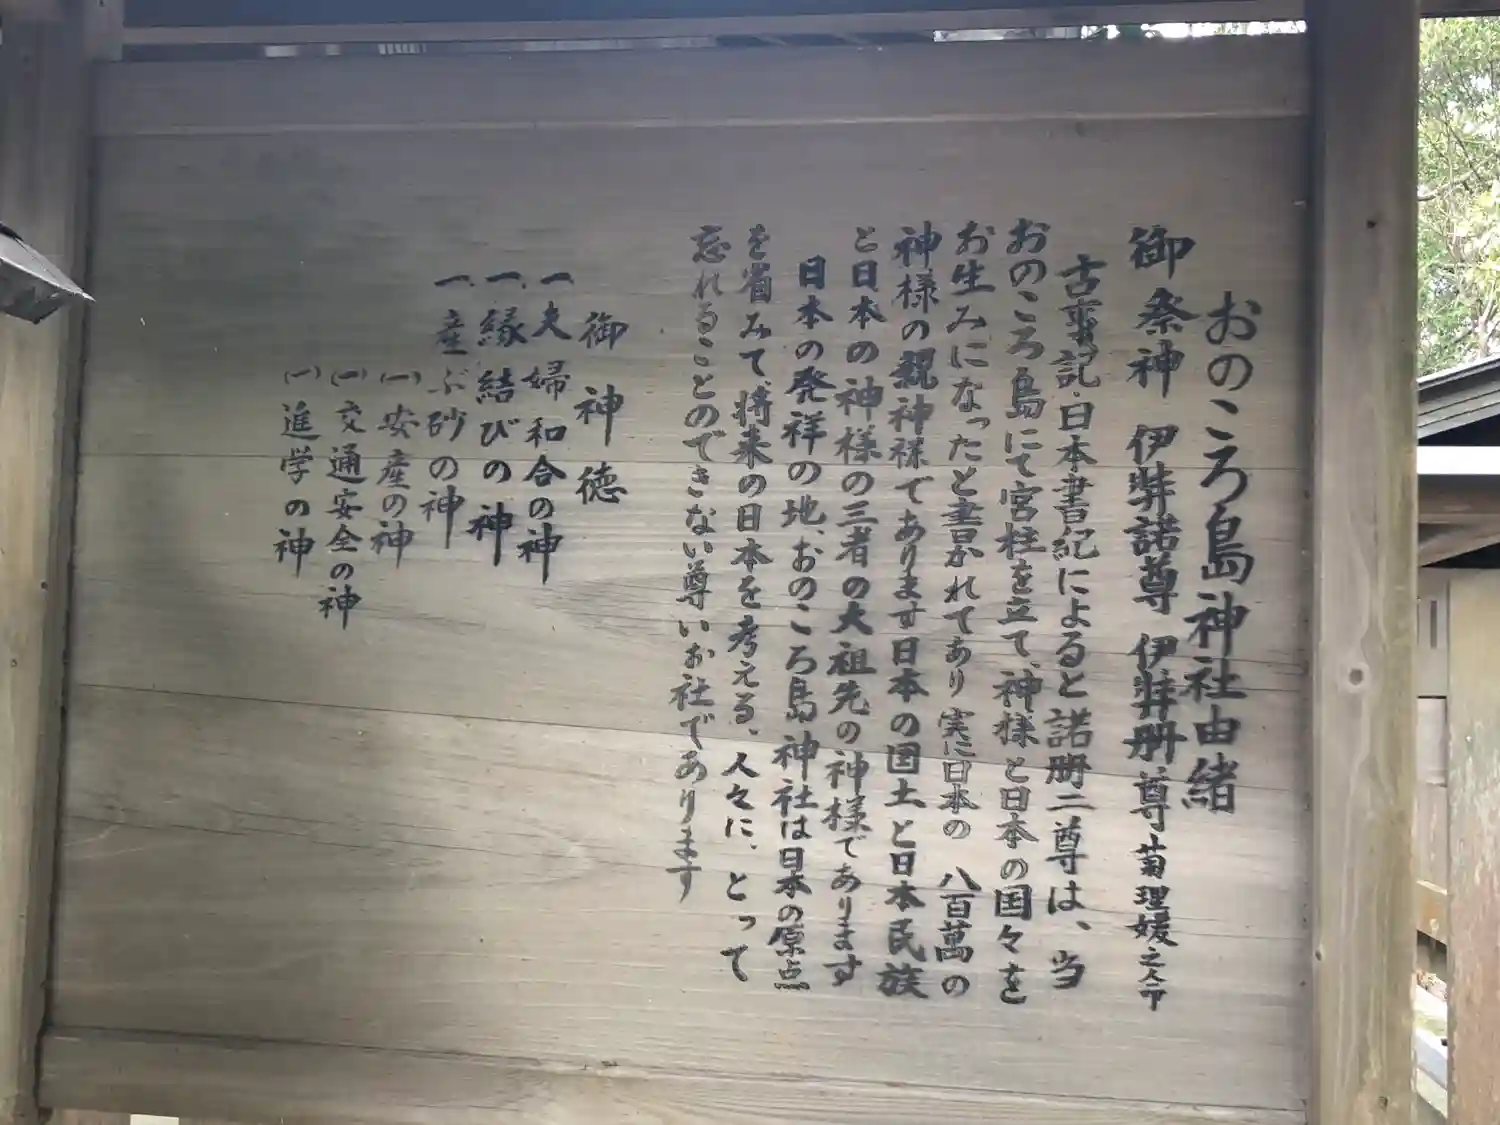 おのころ島神社由緒
御祭神 伊弉諾尊 伊弉冊尊 菊理媛之命
古事記、日本書紀によると諾冊二尊は、当
おのころ島にて宮柱を立て、神様と日本の国々を
お生みになったと書かれてあり実に日本の 八百萬の
神様の親神様であります日本の国土と日本民族
と日本の神様の三者の大祖先の神様であります
日本の発祥の地、おのころ島神社は日本の原点
を省みて、将来の日本を考える、人々に、とって
忘れることのできない尊いお社であります
御神徳
一、夫婦和合の神
一、縁結びの神
一、産ぶ砂の神
(一)安産の神
(一)交通安全の神
(一)進学の神